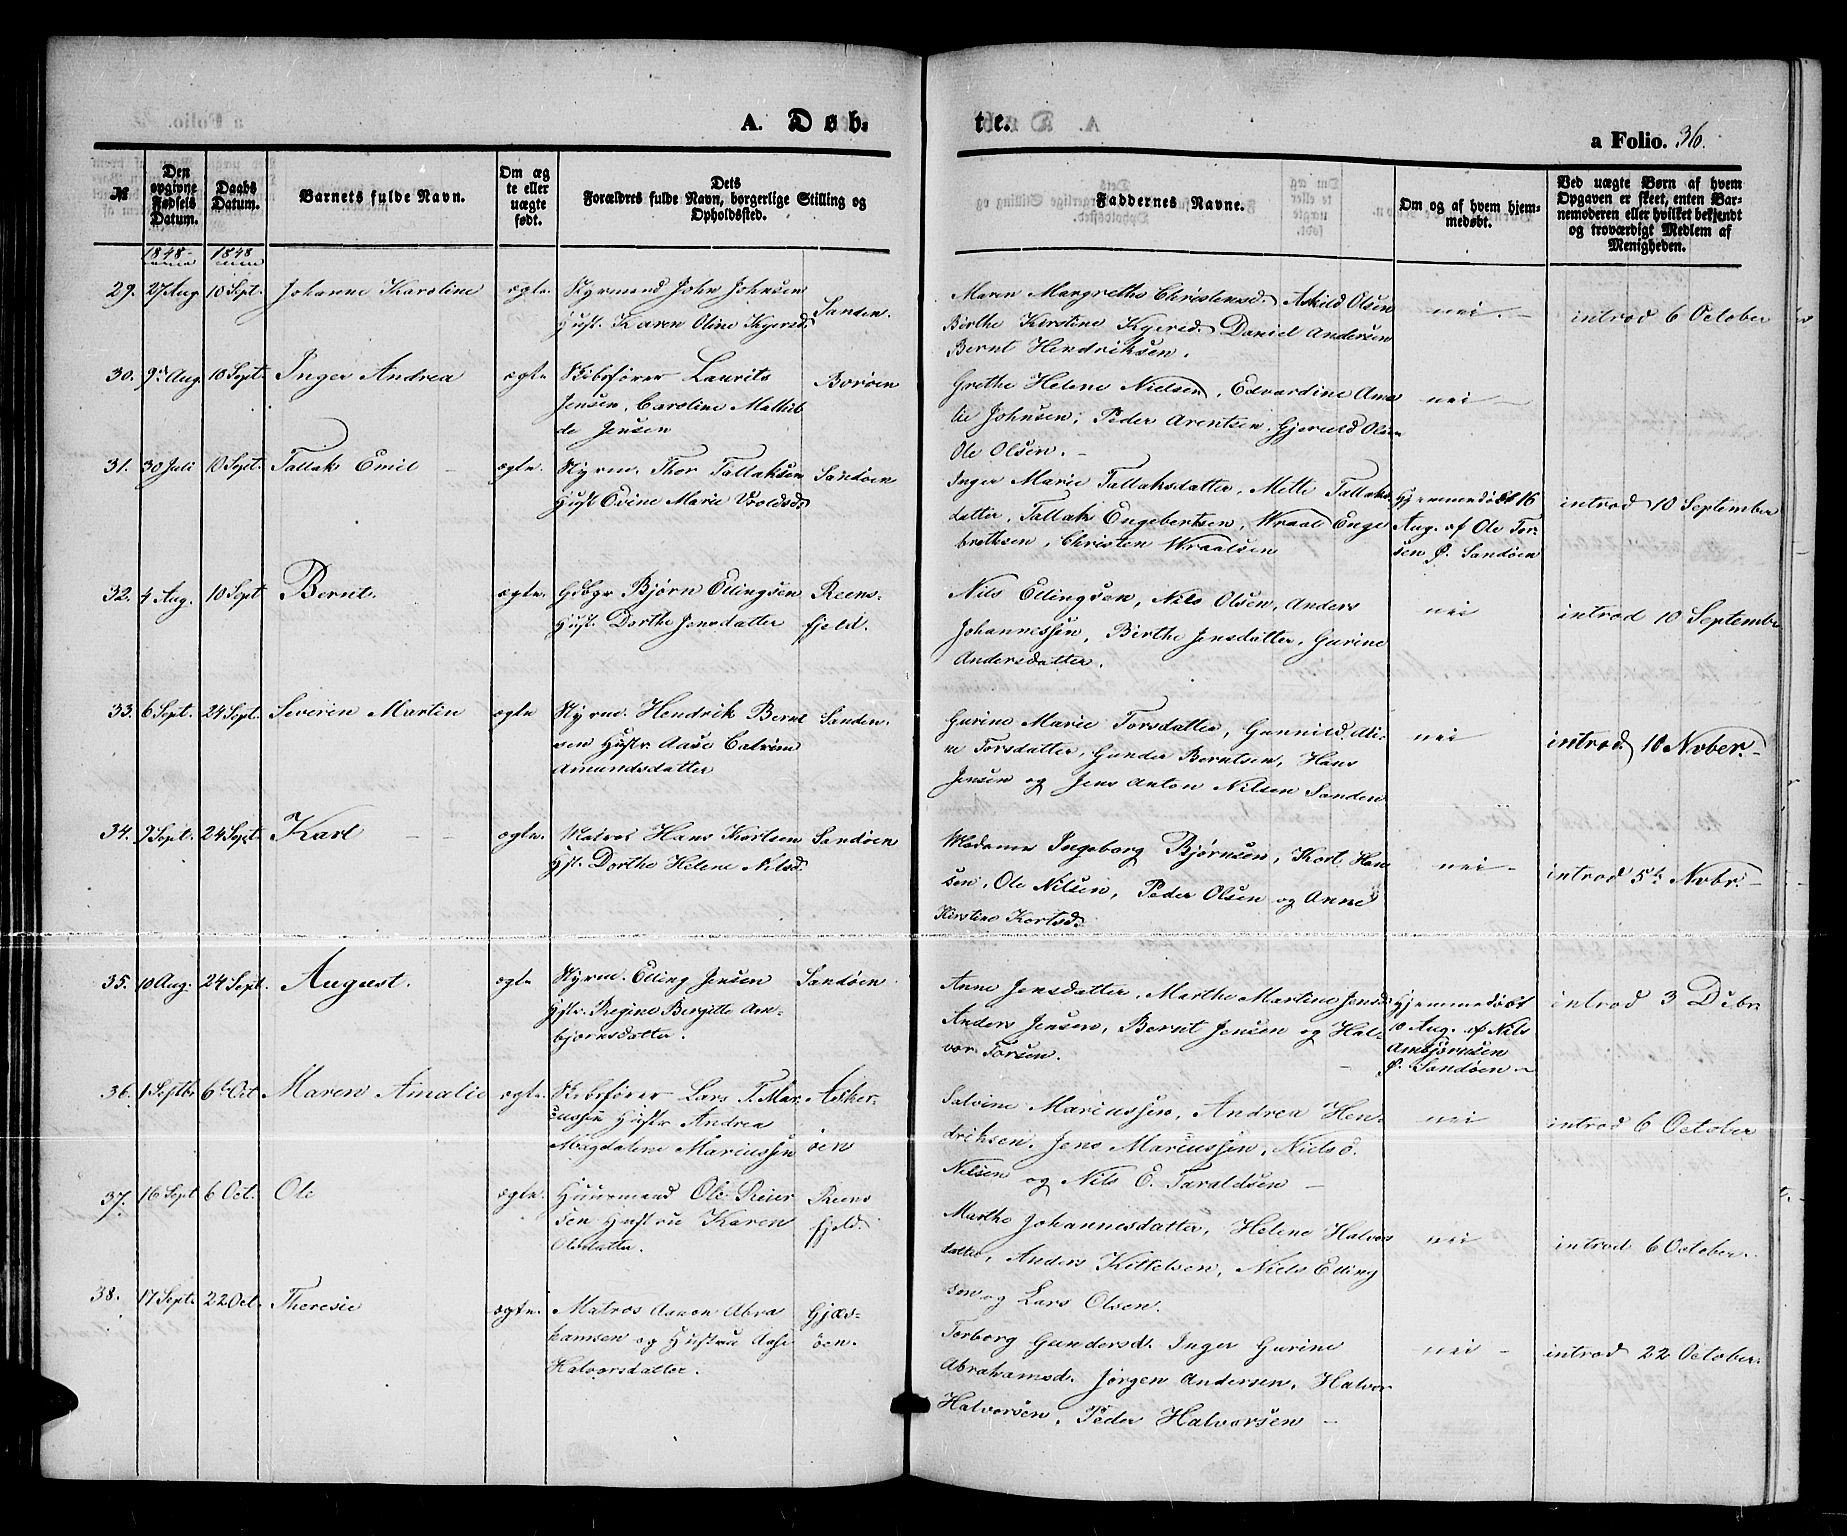 A. Døb-
te.
a Folio. 36.
№
Den opgivne Fødsels Datum.
Daabs Datum.
Barnets fulde Navn.
Om ægte eller uægte født.
Dets Forældres fulde Navn, borgerlige Stilling og Opholdssted.
Faddernes Navne.
Om og af hvem hjemmedøbt.
Ved uægte Børn af hvem Opgaven er skeet, enten Barnemoderen eller hvilket bekjendt og troværdigt Medlem af Menigheden.
1848
1848
29. 27 Aug 10 Sept. Johanne Karoline ægte Styrmand John Johnsen
Hust. Karen Oline Kgersd. Sanden.
Maren Margrethe Christensd. Askild Olsen
Birthe Kirstine Kgersd. Daniel Andersen
Bernt Hendriksen.
nei. — introd 6 October
30. 9 Aug 10 Sept. Inger Andrea ægte Skibsfører Laurits
Jensen, Caroline Mathil
de Jensen
Borøen
Grethe Helene Nielsen, Edvardine Ama
lie Johnsen, Peder Arentsen, Gjeruld Olsen
Ole Olsen. —
nei —
31. 30 Juli 10 Sept. Tallak Emil — ægte. Styrm. Thor Tallaksen
Hust Ovine Marie Voldsd.
Sandøen
Inger Marie Tallaksdatter, Mette Tallaks
datter, Tallak Engebertsen, Wraal Enge
brethsen, Christen Wraalsen
Hjemmedøbt 16
Aug. af Ole Tor
sen Ø. Sandøen
introd 10 September
32. 4 Aug. 10 Sept Bernt. ægte. Gdbgr Bjørn Ellingsen
Hust. Dorthe Jensdatter
Reens-
fjeld.
Nils Ellingsen, Nils Olsen, Anders
Johannessen, Birthe Jensdatter, Gurine
Andersdatter.
nei introd 10 Septembr
33. 6 Sept. 24 Sept. Severin Martin ægte Styrm. Hendrik Bernt
sen Hustr. Aase Catrine
Amundsdatter
Sanden.
Gurine Marie Torsdatter, Gunnild Ali-
ne Torsdatter, Gunder Berntsen, Hans
Jensen og Jens Anton Nilsen Sanden
nei introd. 10 Nvber. —
34. 9 Sept. 24 Sept. Karl — — ægte. Matros Hans Karlsen
Hst. Dorthe Helene Nilsd.
Sandøen
Madame Ingeborg Bjørnsen, Karl Han
sen, Ole Nilsen, Peder Olsen og Anne
Kirstine Karlsd.
nei - introd 5te Nvbr. —
35. 10 Aug. 24 Sept. August. ægte Styrm. Elling Jensen
Hstr. Regine Birgitte Am-
bjørnsdatter.
Sandøen
Anne Jensdatter, Marthe Martine Jensd.
Anders Jensen, Bernt Jensen og Hal-
vor Torsen.
Hjemmedøbt
10 Aug. af Nils
Ambjørnsen
Ø. Sandøen —
introd 3 Debr
36. 1 Septbr 6te Oct Maren Amalie ægte. Skibsfører Lars T. Mar
cussen Hustr Andrea
Magdalene Mariussen
Asker-
øen
Salvine Mariussen, Andrea Hen-
driksen, Jens Marcussen, Niels O.
Nilsen og Nils E. Taraldsen —
nei introd 6 October
37. 16 Sept 6 Oct. Ole ægte. Huusmand Ole Reier
sen Hustru Karen
Olsdatter.
Reens
fjeld.
Marthe Johannesdatter, Helene Halvors
datter, Anders Kittelsen, Niels Elling
sen og Lars Olsen.
nei introd 6 October.
38. 17 Sept. 22 Oct. Theresie ægte. Matros Aanon Abra
hamsen og Hustru Aase
Halvorsdatter.
Gjæs-
øen.
Torborg Gundersd. Inger Gurine
Abrahamsd. Jørgen Andersen, Halvor
Halvorsen, Peder Halvorsen —
nei - introd 22 October.